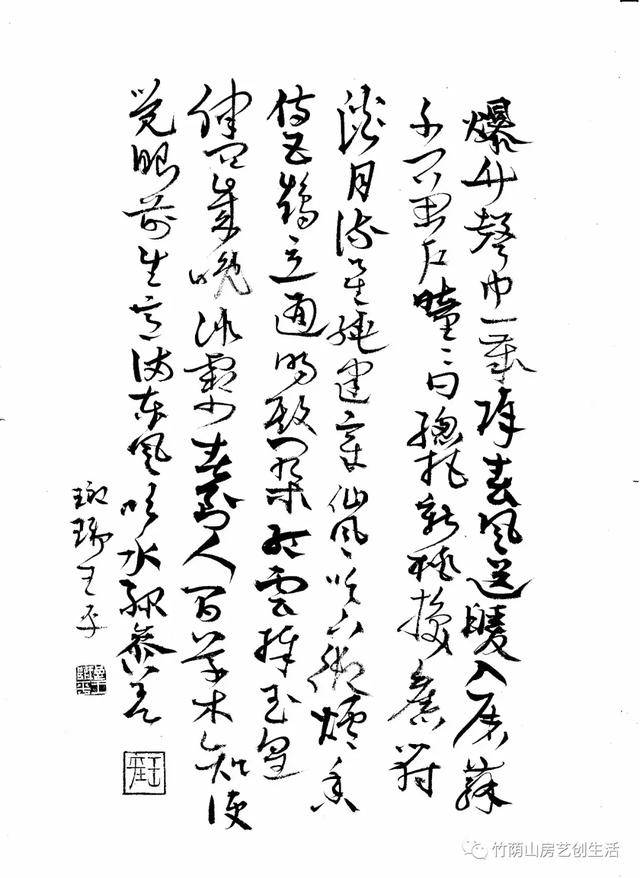 爆竹聲中一歲除春風送暖入屠蘇
千門萬户曈曈日總把新桃換舊符
淡月疏星繞建章仙風吹下御爐香
侍臣鵠立通明殿一朵紅雲捧玉皇
律回歲晚冰霜少春到人間草木知便
覺眼前生意滿東風吹水綠參差
琅琊王平
竹荫山房艺创生活